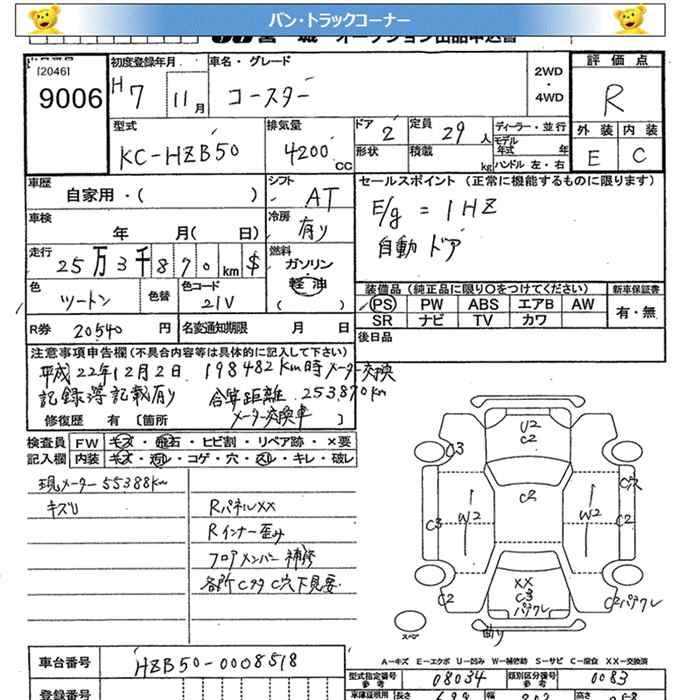 バン・トラックコーナー
[2046]
9006
初度登録年月
H7 11月
車名・グレード
コースター
2WD
・
4WD
評価点
R
外装 内装
E C
型式
KC-HZB50
排気量
4200 CC
ドア 2
形状
定員 29人
積載 kg
ディーラー・並行
モデル年式 年
ハンドル 左・右
車歴
自家用・( )
シフト
AT
セールスポイント (正常に機能するものに限ります)
E/g = 1HZ
自動ドア
車検
年 月( 日)
冷房
有り
走行
25万3千870km $
燃料
ガソリン
軽油
( )
色
ツートン
色替
色コード
21V
装備品 (純正品に限り○をつけてください)
PS PW ABS エアB AW
SR ナビ TV カワ
新車保証書
有・無
R券 20540 円
名変通知期限 月 日
後日品
注意事項申告欄 (不具合内容等は具体的に記入して下さい)
平成22年12月2日 198482km時メーター交換
記録簿記載有り 合算距離 253,870km
メーター交換車
修復歴 有 [箇所 ]
検査員 FW キズ・飛石・ヒビ割・リペア跡・×要
記入欄 内装 キズ・汚レ・コゲ・穴・スレ・キレ・破レ
現メーター55388km
キズU
RパネルXX
Rインナー歪み
フロアメンバー補修
各所Cタタ C穴下見要
U2
C2
C3
C穴
C2
C3
W2
W2
C2
C2
XX
C3
パテクレ
C2パテクレ
スペアー
曲り
A－キズ E－エクボ U－凹み W－補修跡 S－サビ C－腐食 XX－交換済
車台番号 HZB50-0008518
型式指定番号
参考
08034
類別区分番号
参考
0083
登録番号
長さ
幅
高さ